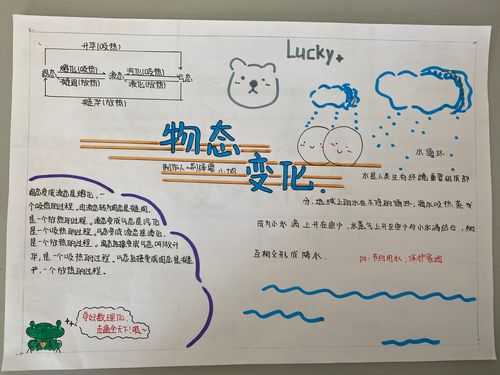 升华(吸热)
固态 熔化(吸热) 液态 汽化(吸热) 气态
凝固(放热) 液化(放热)
凝华(放热)
Lucky
物态
变化
水循环
水是人类生存环境重要组成部
分,地球上的水在不停的循环,海水吸热蒸发
成为小水滴上升在空中,水蒸气上升至空中与小水滴结合,相
互相交形成降水.
ps:节约用水,保护资源
固态变成液态是熔化,一
个吸热的过程.由液态转为固态是凝固.
是一个放热的过程.液态变成气态是汽化
是一个吸热的过程.气态变成液态是液化.
是一个放热的过程.固态直接变成气态叫做升
华.是一个吸热的过程.气态直接变成固态是凝
华.一个放热的过程.
学好数理化,
走遍全天下!哦~